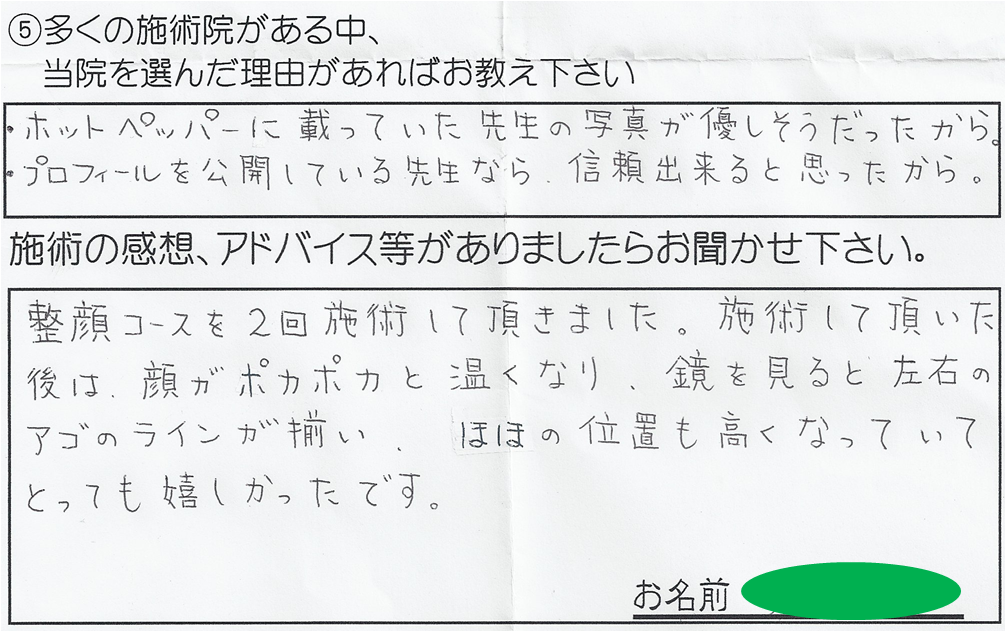 ⑤多くの施術院がある中、
当院を選んだ理由があればお教え下さい
・ホットペッパーに載っていた先生の写真が優しそうだったから。
・プロフィールを公開している先生なら、信頼出来ると思ったから。
施術の感想、アドバイス等がありましたらお聞かせ下さい。
整顔コースを2回施術して頂きました。施術して頂いた
後は、顔がポカポカと温くなり、鏡を見ると左右の
アゴのラインが揃い、ほほの位置も高くなっていて
とっても嬉しかったです。
お名前